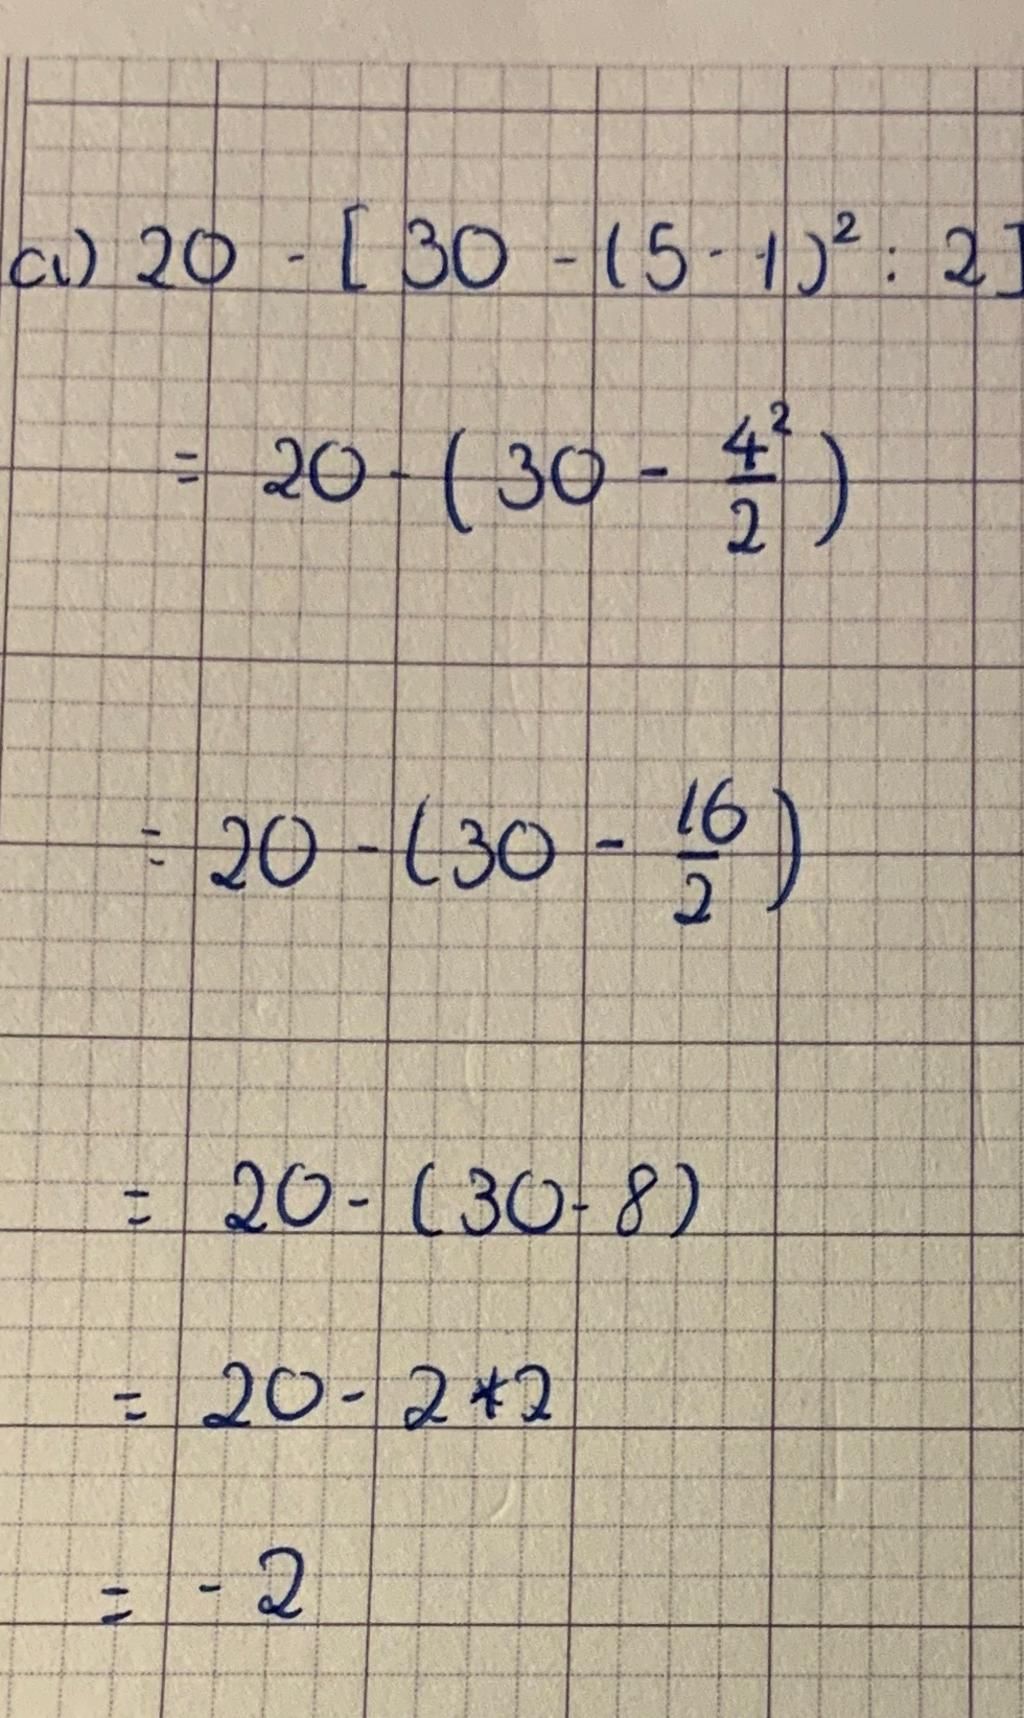 a) 20 - [ 30 - (5 - 1)² : 2]
= 20 - ( 30 - 4²/2 )
= 20 - (30 - 16/2 )
= 20 - (30 - 8)
= 20 - 2*2
= - 2